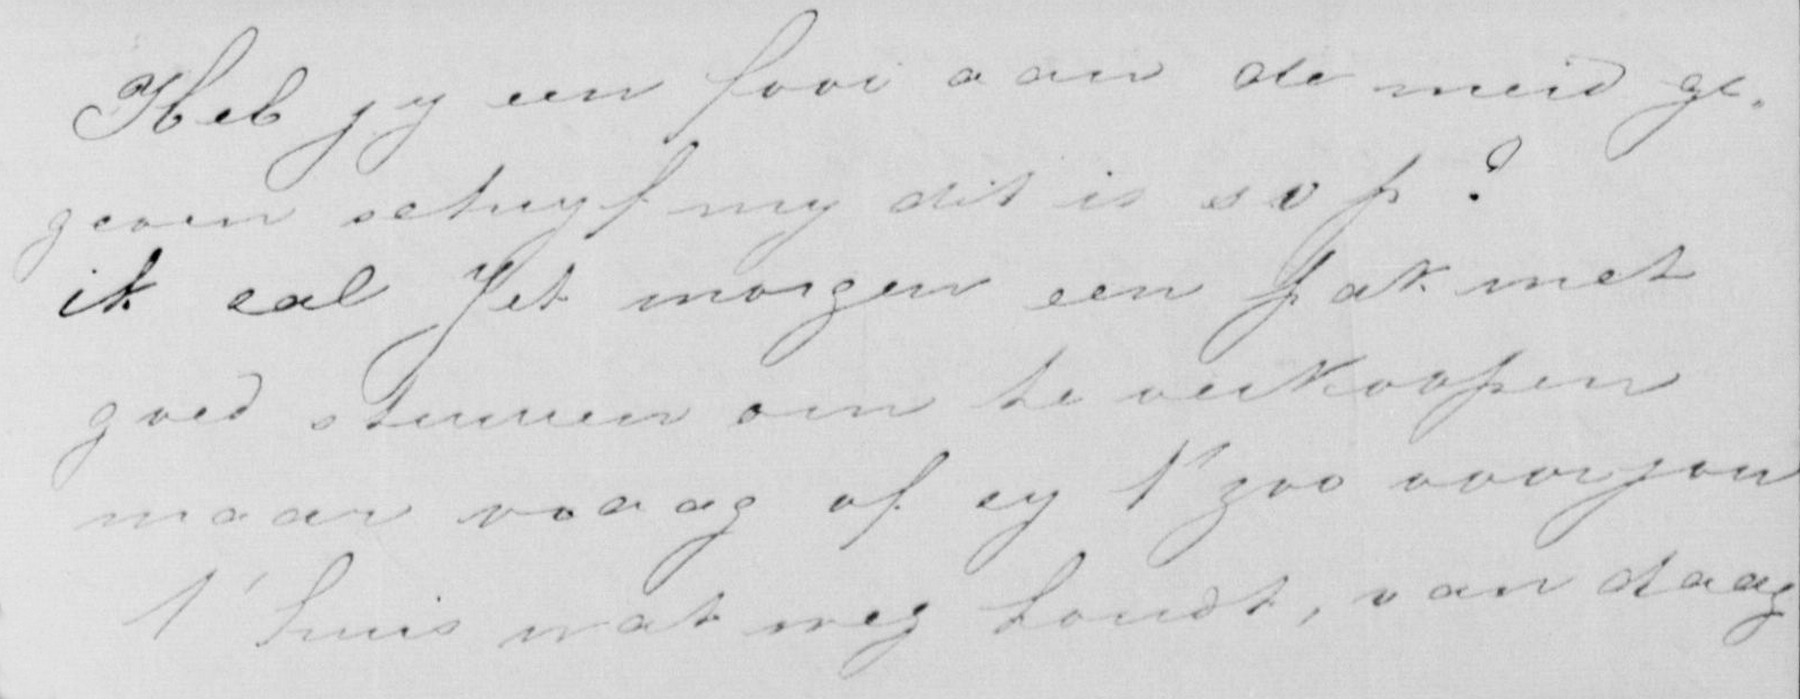 Heb jy een fooi aan de meid ge-
geven schryf my dit is sop?
ik zal Jet morgen een pak met
goed sturen om te verkoopen
maar vraag of zy t' zoo voor jou
t' huis wat weg houdt, van daag